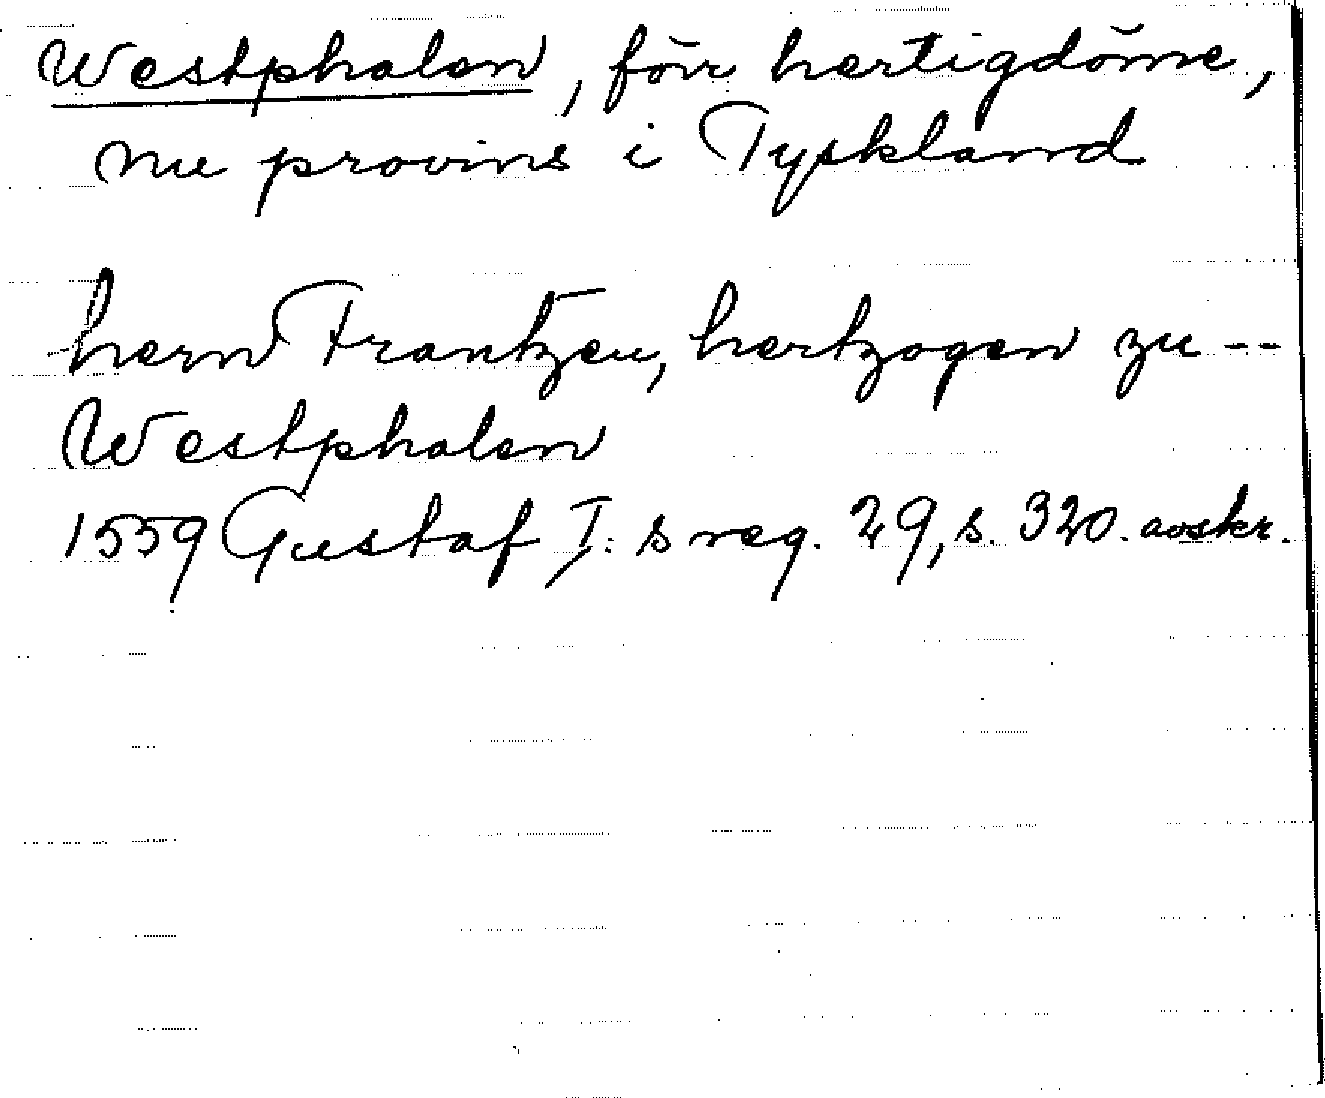 Westphalen, förr hertigdöme,
nu provins i Tyskland
hern Frantzen, hertzogen zu --
Westphalen
1559 Gustaf I: s reg. 29, s. 320. avskr.